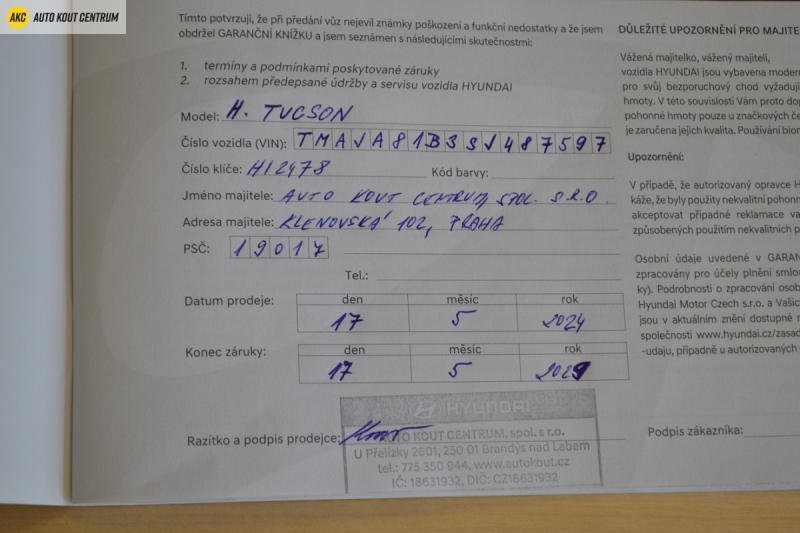 AKC AUTO KOUT CENTRUM
Tímto potvrzuji, že při předání vůz nejevil známky poškození a funkční nedostatky a že jsem
obdržel GARANČNÍ KNÍŽKU a jsem seznámen s následujícími skutečnostmi:
1. termíny a podmínkami poskytované záruky
2. rozsahem předepsané údržby a servisu vozidla HYUNDAI
Model: H. TUCSON
Číslo vozidla (VIN): TMAJA81B3SJ487597
Číslo klíče: H12478 Kód barvy:
Jméno majitele: AUTO KOUT CENTRUM, SPOL. S.R.O.
Adresa majitele: KLENOVSKÁ 102, PRAHA
PSČ: 19017
Tel.:
Datum prodeje: den měsíc rok
17 5 2024
Konec záruky: den měsíc rok
17 5 2029
Razítko a podpis prodejce:
HYUNDAI
AUTO KOUT CENTRUM, spol. s r.o.
U Přelízky 2601, 250 01 Brandýs nad Labem
tel.: 775 350 944, www.autokout.cz
IČ: 18631932, DIČ: CZ18631932
Podpis zákazníka:
DŮLEŽITÉ UPOZORNĚNÍ PRO MAJITE
Vážená majitelko, vážený majiteli,
vozidla HYUNDAI jsou vybavena moder
pro svůj bezporuchový chod vyžadují
hmoty. V této souvislosti Vám proto dop
pohonné hmoty pouze u značkových če
je zaručena jejich kvalita. Používání bion
Upozornění:
V případě, že autorizovaný opravce H
káže, že byly použity nekvalitní pohonn
akceptovat případné reklamace va
způsobených použitím nekvalitních p
Osobní údaje uvedené v GARAN
zpracovány pro účely plnění smlou
ky). Podrobnosti o zpracování osob
Hyundai Motor Czech s.r.o. a Vašic
jsou v aktuálním znění dostupné n
společnosti www.hyundai.cz/zasad
-udaju, případně u autorizovaných